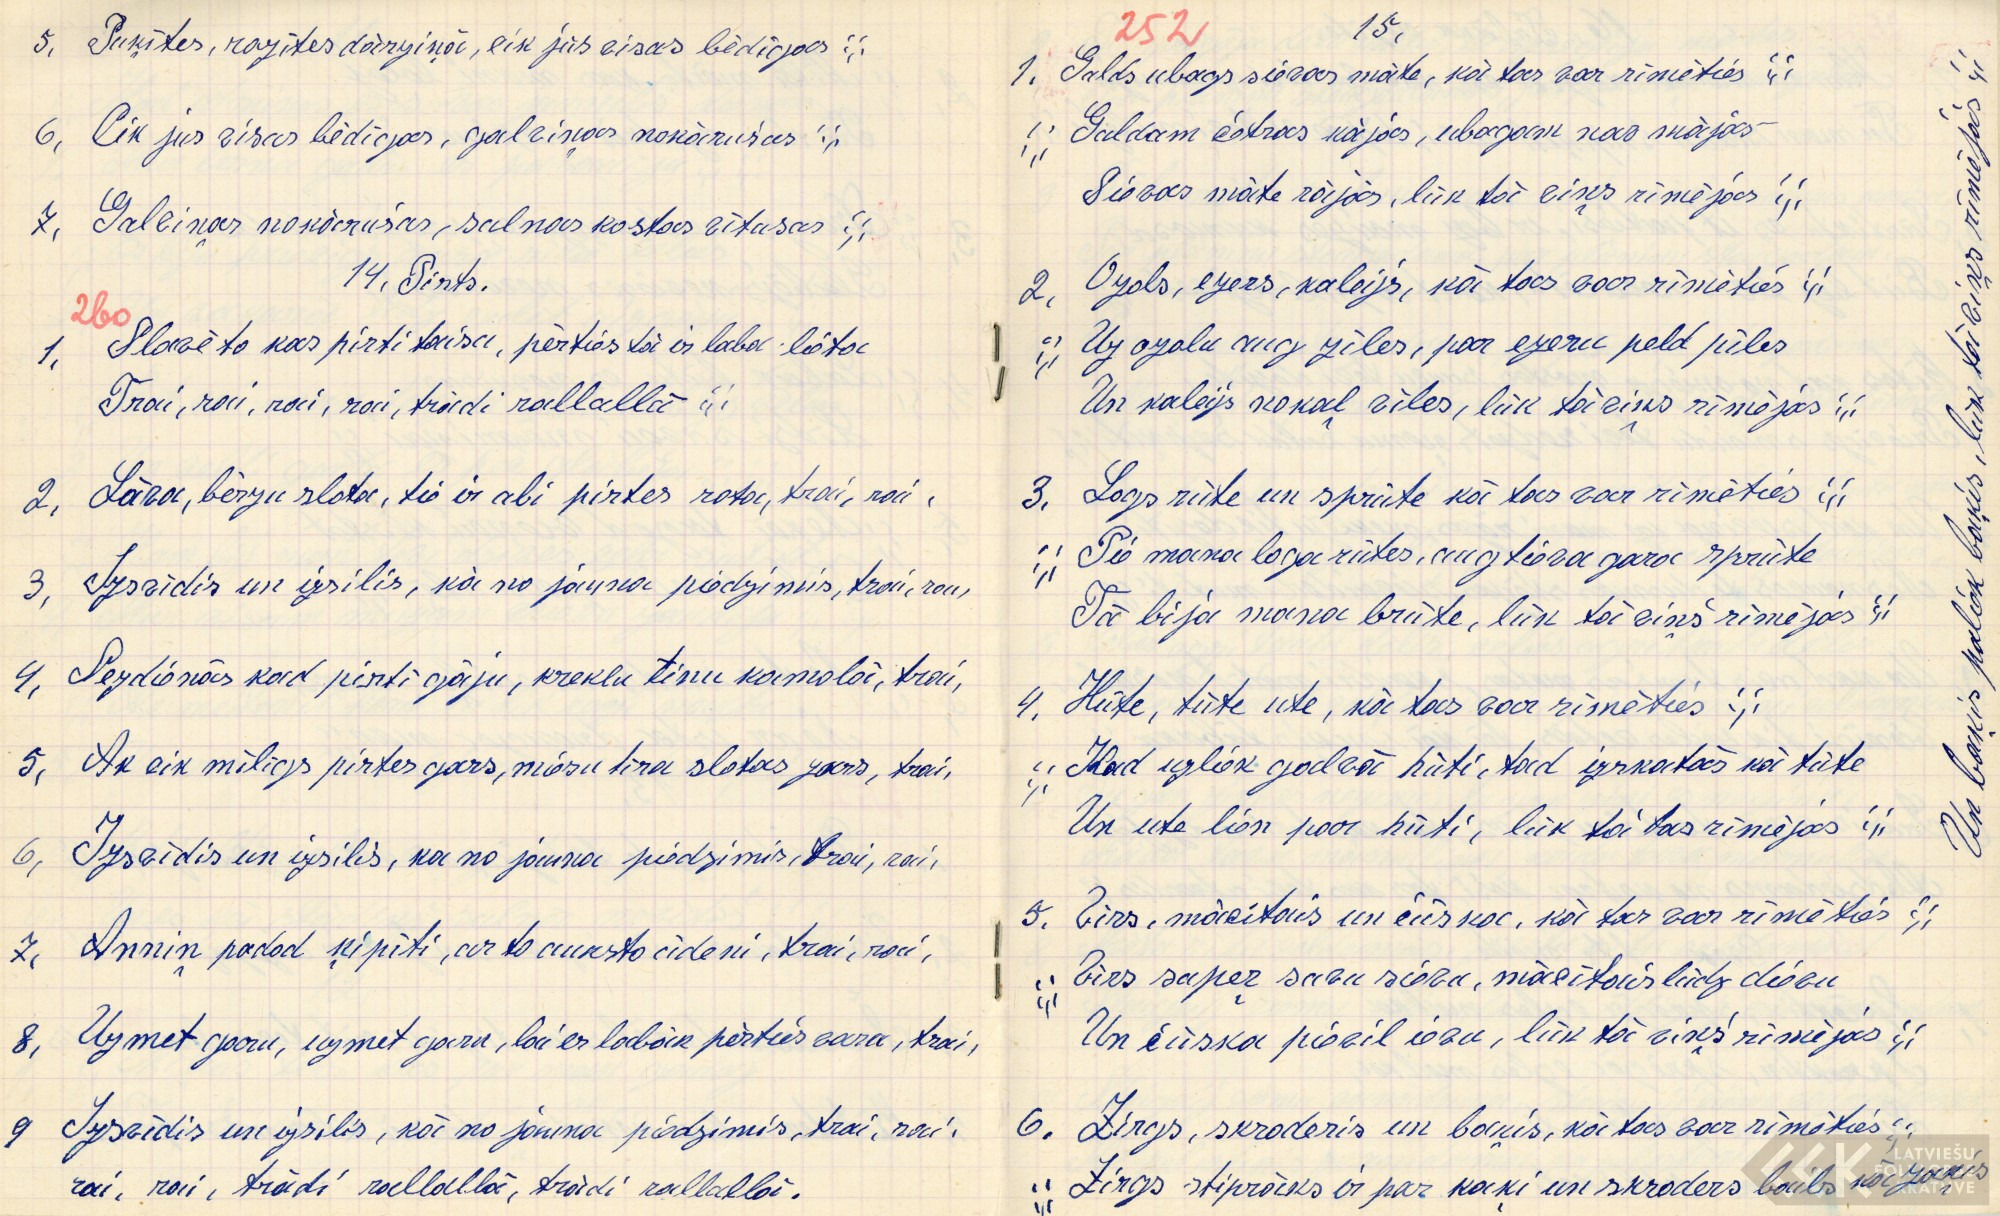 5, Puķītes, rozītes dārziņā, cik jūs visas bēdīgas :,:
6, Cik jus visas bēdīgas, galviņas nokārušas :,:
7, Galviņas nokārušas, salnas kostas vītušas :,:
14, Pirts.
260
1, Slavēto kas pirti taisa, pērties tā ir laba lieta
Trai, rai, rai, rai, trādi rallallā :,:
2, Lāva, bērzu slota, tie ir abi pirtes rota, trai, rai,
3, Izsvīdis un izsilis, kā no jauna piedzimis, trai, rai,
4, Sezdienās kad pirtī gāju, kreklu tinu kamolā, trai,
5, Ak cik mīlīgs pirtes gars, miesu tira slotas zars, trai,
6, Izsvīdis un izsilis, ka no jauna piedzimis, trai, rai,
7, Anniņ padod ķipīti, ar to auksto ūdeni, trai, rai,
8, Uzmet garu, uzmet garu, lai er labāk pērties varu, trai,
9 Izsvīdis un izsilis, kā no jauna piedzimis, trai, rai,
rai, rai, trādi rallallā, trādi rallallā.
252
15,
1, Galds ubags sievas māte, kā tas var rīmēties :,:
:,: Galdam četras kājas, ubagam nas mājas
Sievas māte rājās, lūk tā viņs rīmējās :,:
2, Ozols, ezers, kalējs, kā tas var rīmēties :,:
:,: Uz ozolu aug zīles, par ezeru peld pīles
Un kalējs nokaļ vīles, lūk tā viņs rīmējās :,:
3, Logs rūte un sprūte kā tas var rīmēties :,:
:,: Pie mana loga rūtes, aug tieva gara sprūte
Tā bija mana brūte, lūk tā viņš rīmējās :,:
4, Hūte, tūte ute, kā tas var rīmēties :,:
:,: Kad uzliek galvā hūti, tad izskatās kā tūte
Un ute lien par hūti, lūk tā tas rīmējās :,:
5. Vīrs, mācītais un čūska, kā tas var rīmēties :,:
:,: Vīrs saper savu sievu, mācītais lūdz dievu
Un čūska pievil ievu, lūk tā viņš rīmējās :,:
6. Zirgs, skroderis un baņis, kā tas var rīmēties :,:
:,: Zirgs stiprāks ir par kaķi un skroders bailes kā zaķis
Un baņis paliek baņis, lūk tā viņs rīmējās :,:
LATVIEŠU